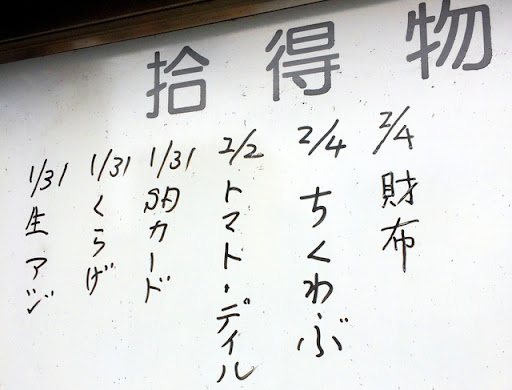 拾得物
2/4 財布
2/4 ちくわぶ
2/2 トマト・ディル
1/31 SDカード
1/31 くらげ
1/31 生アジ